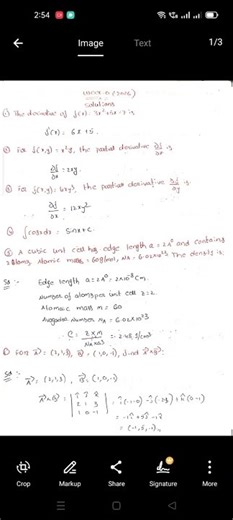 2:54
Image
Text
1/3
Solutions
① The derivative of f(x) = 3x²+5x-7 is
f(x) = 6x+5.
② For f(x,y) = x²y, the partial derivative ∂f/∂x is
∂f/∂x = 2xy.
③ For f(x,y) = 6xy³, the partial derivative ∂f/∂y is
④ ∫cosx dx = Sinx+C.
⑤ A cubic unit cell has edge length a = 2A° and contains
2 atoms. Atomic mass = 60g/mol, NA = 6.02x10²³ The density is
Edge length a = 2A° = 2x10⁻⁸ Cm.
Number of atoms per unit cell z = 2
Atomic mass m = 60
Avogadro Number NA = 6.02x10²³
For A = (2,1,3), B = (1,0,-1), find AxB.
A = (2,1,3), B = (1,0,-1)
= (-1,5,-1)
Crop
Markup
Share
Signature
More